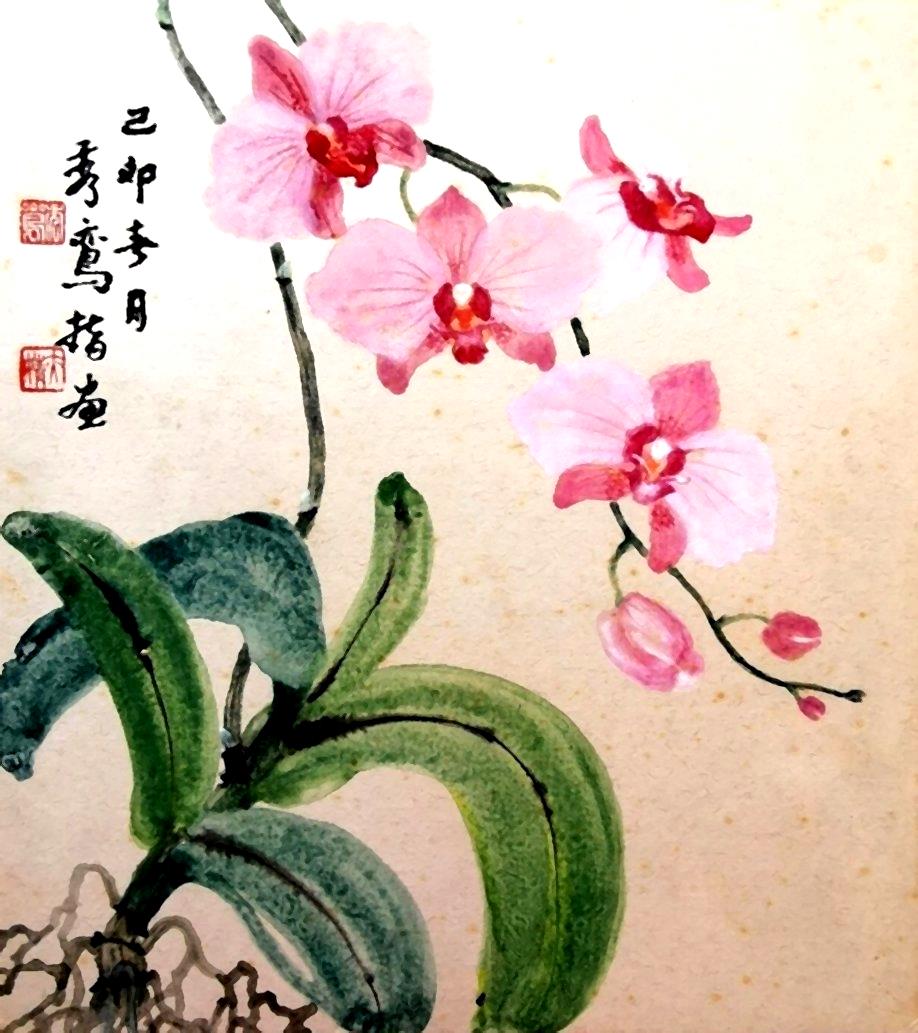 己卯春月
秀鸾指画